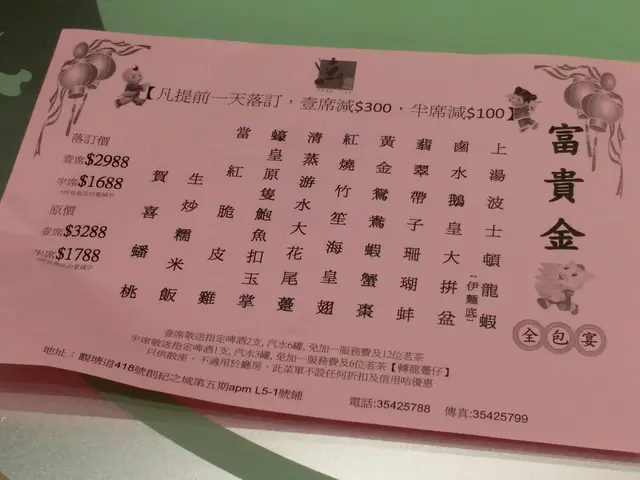 【凡提前一天落訂，壹席減$300，半席減$100】
富貴金
全包宴
上湯波士頓龍蝦
[伊麵底]
鹵水鵝皇大拼盆
翡翠帶子珊瑚蚌
黃金鴛鴦蝦蟹棗
紅燒竹笙海皇翅
清蒸游水大花尾躉
蠔皇原隻鮑魚扣玉掌
當紅脆皮雞
生炒糯米飯
賀喜蟠桃
落訂價
壹席$2988
半席$1688
原價
壹席$3288
半席$1788
壹席敬送指定啤酒2支, 汽水6罐, 免加一服務費及12位茗茶
半席敬送指定啤酒1支, 汽水3罐, 免加一服務費及6位茗茶【轉龍躉仔】
只供散座，不適用於廳房，此菜單不設任何折扣及信用咭優惠
地址：觀塘道418號創紀之城第五期apm L5-1號鋪
電話:35425788 傳真:35425799